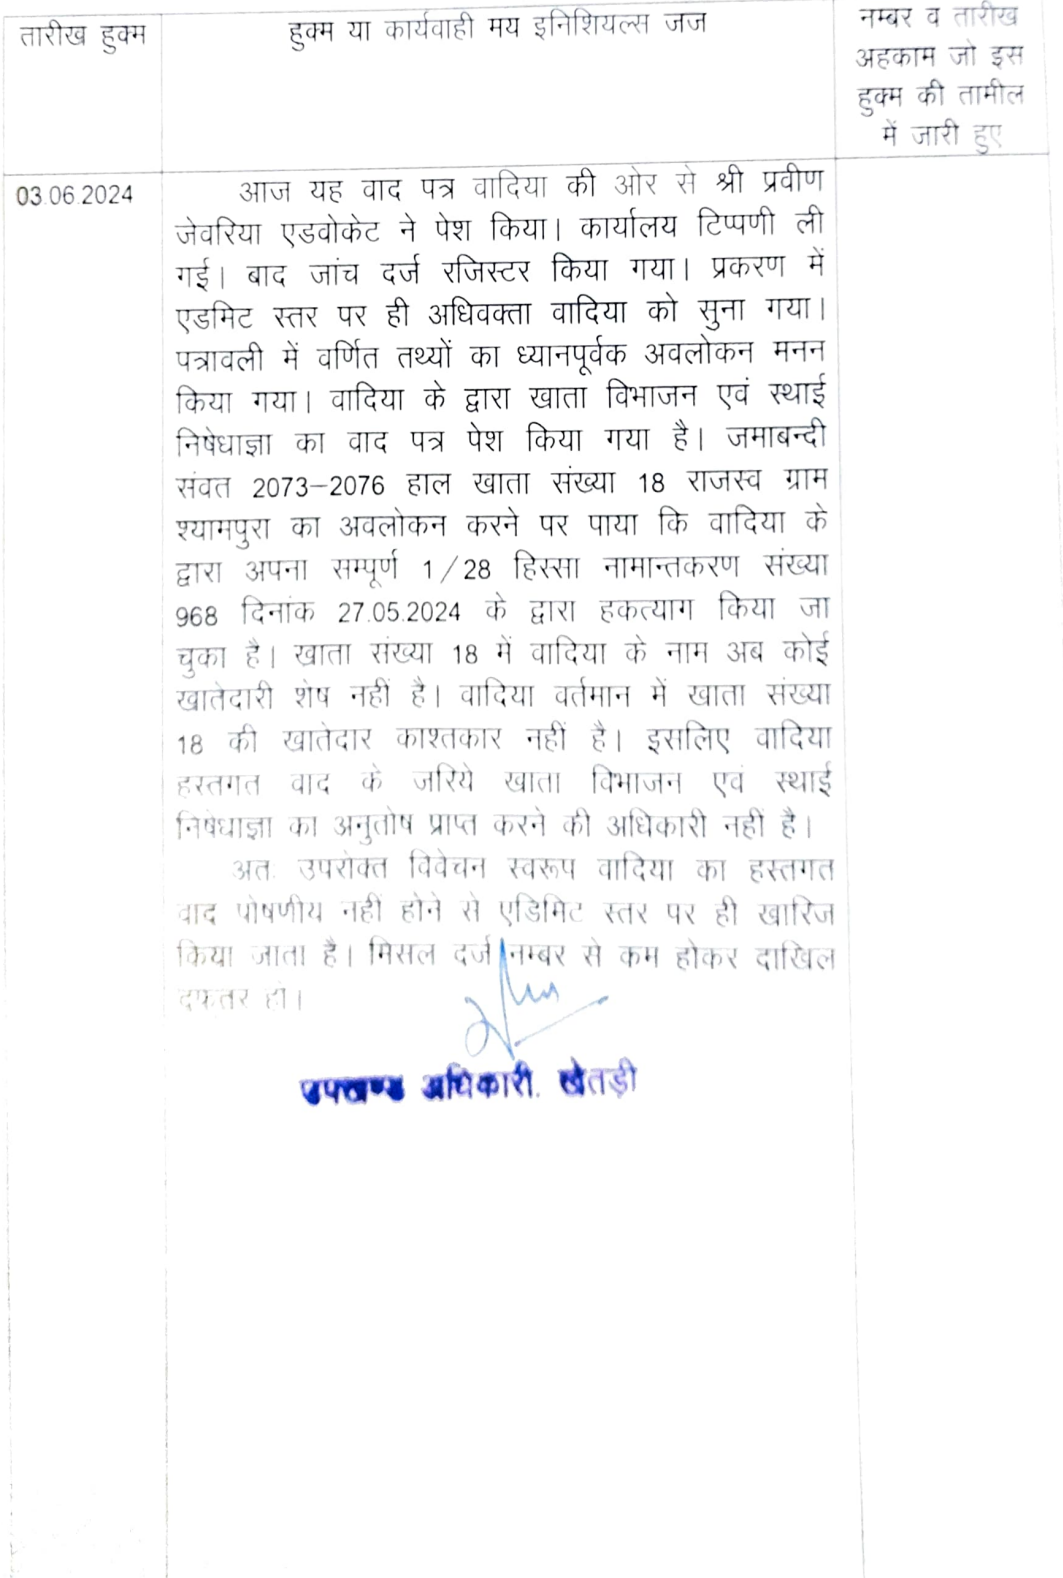 तारीख हुक्म
हुक्म या कार्यवाही मय इनिशियल्स जज
नम्बर व तारीख
अहकाम जो इस
हुक्म की तामील
में जारी हुए
03.06.2024
आज यह वाद पत्र वादिया की ओर से श्री प्रवीण
जेवरिया एडवोकेट ने पेश किया। कार्यालय टिप्पणी ली
गई। बाद जांच दर्ज रजिस्टर किया गया। प्रकरण में
एडमिट स्तर पर ही अधिवक्ता वादिया को सुना गया।
पत्रावली में वर्णित तथ्यों का ध्यानपूर्वक अवलोकन मनन
किया गया। वादिया के द्वारा खाता विभाजन एवं स्थाई
निषेधाज्ञा का वाद पत्र पेश किया गया है। जमाबन्दी
संवत 2073-2076 हाल खाता संख्या 18 राजस्व ग्राम
श्यामपुरा का अवलोकन करने पर पाया कि वादिया के
द्वारा अपना सम्पूर्ण 1/28 हिस्सा नामान्तकरण संख्या
968 दिनांक 27.05.2024 के द्वारा हकत्याग किया जा
चुका है। खाता संख्या 18 में वादिया के नाम अब कोई
खातेदारी शेष नहीं है। वादिया वर्तमान में खाता संख्या
18 की खातेदार काश्तकार नहीं है। इसलिए वादिया
हस्तगत वाद के जरिये खाता विभाजन एवं स्थाई
निषेधाज्ञा का अनुतोष प्राप्त करने की अधिकारी नहीं है।
अतः उपरोक्त विवेचन स्वरूप वादिया का हस्तगत
वाद पोषणीय नहीं होने से एडिमिट स्तर पर ही खारिज
किया जाता है। मिसल दर्ज नम्बर से कम होकर दाखिल
दफ्तर हो।
उपखण्ड अधिकारी. खेतड़ी